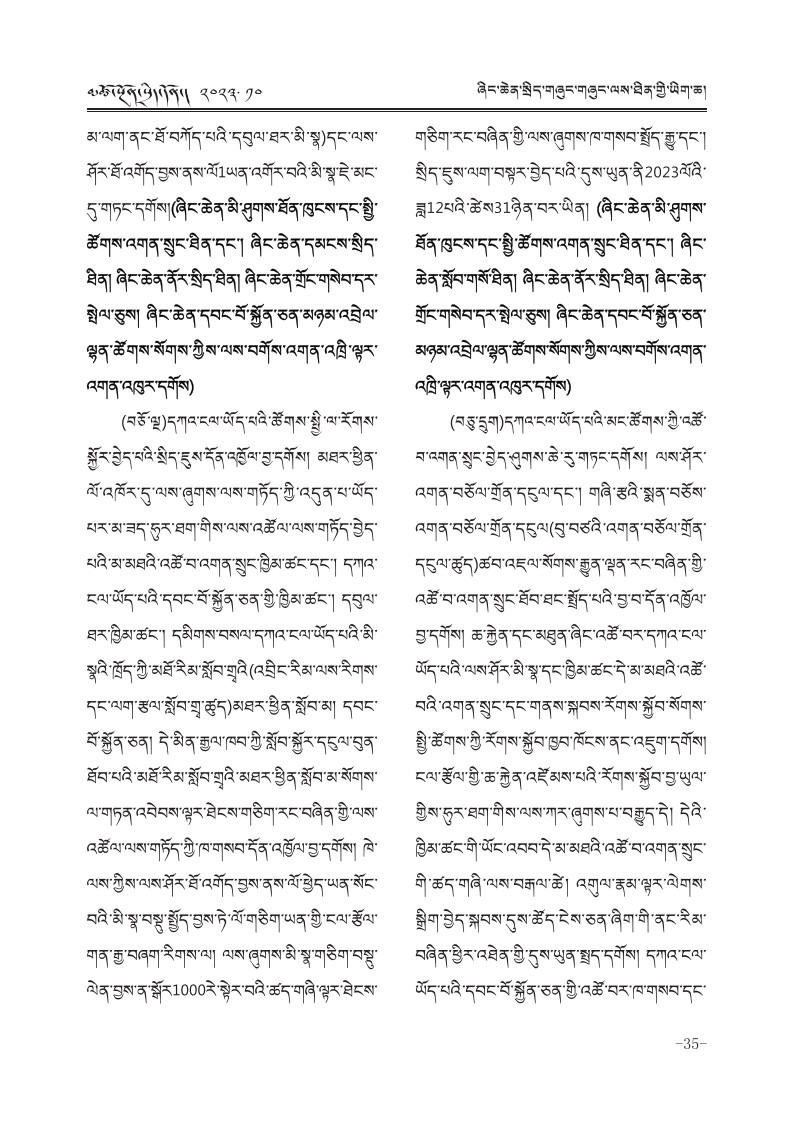 མཚོ་སྔོན་སྲིད་གཞུང་། ༢༠༢༣·༡༠
ཞིང་ཆེན་སྲིད་གཞུང་གཞུང་ལས་ཐིན་གྱི་ཡིག་ཆ།
མ་ལག་ནང་ཐོ་བཀོད་པའི་དབུལ་ཐར་མི་སྣ)དང་ལས་
ཤོར་ཐོ་འགོད་བྱས་ནས་ལོ1ཡན་འགོར་བའི་མི་སྣ་ཇེ་མང་
དུ་གཏང་དགོས།(ཞིང་ཆེན་མི་ཤུགས་ཐོན་ཁུངས་དང་སྤྱི་
ཚོགས་འགན་སྲུང་ཐིན་དང་། ཞིང་ཆེན་དམངས་སྲིད་
ཐིན། ཞིང་ཆེན་ནོར་སྲིད་ཐིན། ཞིང་ཆེན་གྲོང་གསེབ་དར་
སྤེལ་ཅུས། ཞིང་ཆེན་དབང་པོ་སྐྱོན་ཅན་མཉམ་འབྲེལ་
ལྷན་ཚོགས་སོགས་ཀྱིས་ལས་བགོས་འགན་འཁྲི་ལྟར་
འགན་འཁུར་དགོས)
(བཅོ་ལྔ)དཀའ་ངལ་ཡོད་པའི་ཚོགས་སྤྱི་ལ་རོགས་
སྐྱོར་བྱེད་པའི་སྲིད་ཇུས་དོན་འཁྱོལ་བྱ་དགོས། མཐར་ཕྱིན་
ལོ་འཁོར་དུ་ལས་ཞུགས་ལས་གཏོད་ཀྱི་འདུན་པ་ཡོད་
པར་མ་ཟད་ཧུར་ཐག་གིས་ལས་འཚོལ་ལས་གཏོད་བྱེད་
པའི་མ་མཐའི་འཚོ་བ་འགན་སྲུང་ཁྱིམ་ཚང་དང་། དཀའ་
ངལ་ཡོད་པའི་དབང་པོ་སྐྱོན་ཅན་གྱི་ཁྱིམ་ཚང་། དབུལ་
ཐར་ཁྱིམ་ཚང་། དམིགས་བསལ་དཀའ་ངལ་ཡོད་པའི་མི་
སྣའི་ཁྲོད་ཀྱི་མཐོ་རིམ་སློབ་གྲྭའི(འབྲིང་རིམ་ལས་རིགས་
དང་ལག་རྩལ་སློབ་གྲྭ་ཚུད)མཐར་ཕྱིན་སློབ་མ། དབང་
པོ་སྐྱོན་ཅན། དེ་མིན་རྒྱལ་ཁབ་ཀྱི་སློབ་སྐྱོར་དངུལ་བུན་
ཐོབ་པའི་མཐོ་རིམ་སློབ་གྲྭའི་མཐར་ཕྱིན་སློབ་མ་སོགས་
ལ་གཏན་འབེབས་ལྟར་ཐེངས་གཅིག་རང་བཞིན་གྱི་ལས་
འཚོལ་ལས་གཏོད་ཀྱི་ཁ་གསབ་དོན་འཁྱོལ་བྱ་དགོས། ཁེ་
ལས་ཀྱིས་ལས་ཤོར་ཐོ་འགོད་བྱས་ནས་ལོ་ཕྱེད་ཡན་སོང་
བའི་མི་སྣ་བསྡུ་སྤྱོད་བྱས་ཏེ་ལོ་གཅིག་ཡན་གྱི་ངལ་རྩོལ་
གན་རྒྱ་བཞག་རིགས་ལ། ལས་ཞུགས་མི་སྣ་གཅིག་བསྡུ་
ལེན་བྱས་ན་སྒོར1000རེ་སྟེར་བའི་ཚད་གཞི་ལྟར་ཐེངས་
གཅིག་རང་བཞིན་གྱི་ལས་ཞུགས་ཁ་གསབ་སྤྲོད་རྒྱུ་དང་།
སྲིད་ཇུས་ལག་བསྟར་བྱེད་པའི་དུས་ཡུན་ནི2023ལོའི་
ཟླ12པའི་ཚེས31ཉིན་བར་ཡིན། (ཞིང་ཆེན་མི་ཤུགས་
ཐོན་ཁུངས་དང་སྤྱི་ཚོགས་འགན་སྲུང་ཐིན་དང་། ཞིང་
ཆེན་སློབ་གསོ་ཐིན། ཞིང་ཆེན་ནོར་སྲིད་ཐིན། ཞིང་ཆེན་
གྲོང་གསེབ་དར་སྤེལ་ཅུས། ཞིང་ཆེན་དབང་པོ་སྐྱོན་ཅན་
མཉམ་འབྲེལ་ལྷན་ཚོགས་སོགས་ཀྱིས་ལས་བགོས་འགན་
འཁྲི་ལྟར་འགན་འཁུར་དགོས)
(བཅུ་དྲུག)དཀའ་ངལ་ཡོད་པའི་མང་ཚོགས་ཀྱི་འཚོ་
བ་འགན་སྲུང་བྱེད་ཤུགས་ཆེ་རུ་གཏང་དགོས། ལས་ཤོར་
འགན་བཅོལ་གྲོན་དངུལ་དང་། གཞི་རྩའི་སྨན་བཅོས་
འགན་བཅོལ་གྲོན་དངུལ(བུ་བཙའི་འགན་བཅོལ་གྲོན་
དངུལ་ཚུད)ཚབ་འཇལ་སོགས་རྒྱུན་ལྡན་རང་བཞིན་གྱི་
འཚོ་བ་འགན་སྲུང་ཐོབ་ཐང་སྤྲོད་པའི་བྱ་བ་དོན་འཁྱོལ་
བྱ་དགོས། ཆ་རྐྱེན་དང་མཐུན་ཞིང་འཚོ་བར་དཀའ་ངལ་
ཡོད་པའི་ལས་ཤོར་མི་སྣ་དང་ཁྱིམ་ཚང་དེ་མ་མཐའི་འཚོ་
བའི་འགན་སྲུང་དང་གནས་སྐབས་རོགས་སྐྱོབ་སོགས་
སྤྱི་ཚོགས་ཀྱི་རོགས་སྐྱོབ་ཁྱབ་ཁོངས་ནང་འཇུག་དགོས།
ངལ་རྩོལ་གྱི་ཆ་རྐྱེན་འཛོམས་པའི་རོགས་སྐྱོབ་བྱ་ཡུལ་
གྱིས་ཧུར་ཐག་གིས་ལས་ཀར་ཞུགས་པ་བརྒྱུད་དེ། དེའི་
ཁྱིམ་ཚང་གི་ཡོང་འབབ་དེ་མ་མཐའི་འཚོ་བ་འགན་སྲུང་
གི་ཚད་གཞི་ལས་བརྒལ་ཚེ། འགུལ་རྣམ་ལྟར་ལེགས་
སྒྲིག་བྱེད་སྐབས་དུས་ཚོད་ངེས་ཅན་ཞིག་གི་ནང་རིམ་
བཞིན་ཕྱིར་འཐེན་གྱི་དུས་ཡུན་སྤྲད་དགོས། དཀའ་ངལ་
ཡོད་པའི་དབང་པོ་སྐྱོན་ཅན་གྱི་འཚོ་བར་ཁ་གསབ་དང་
-35-